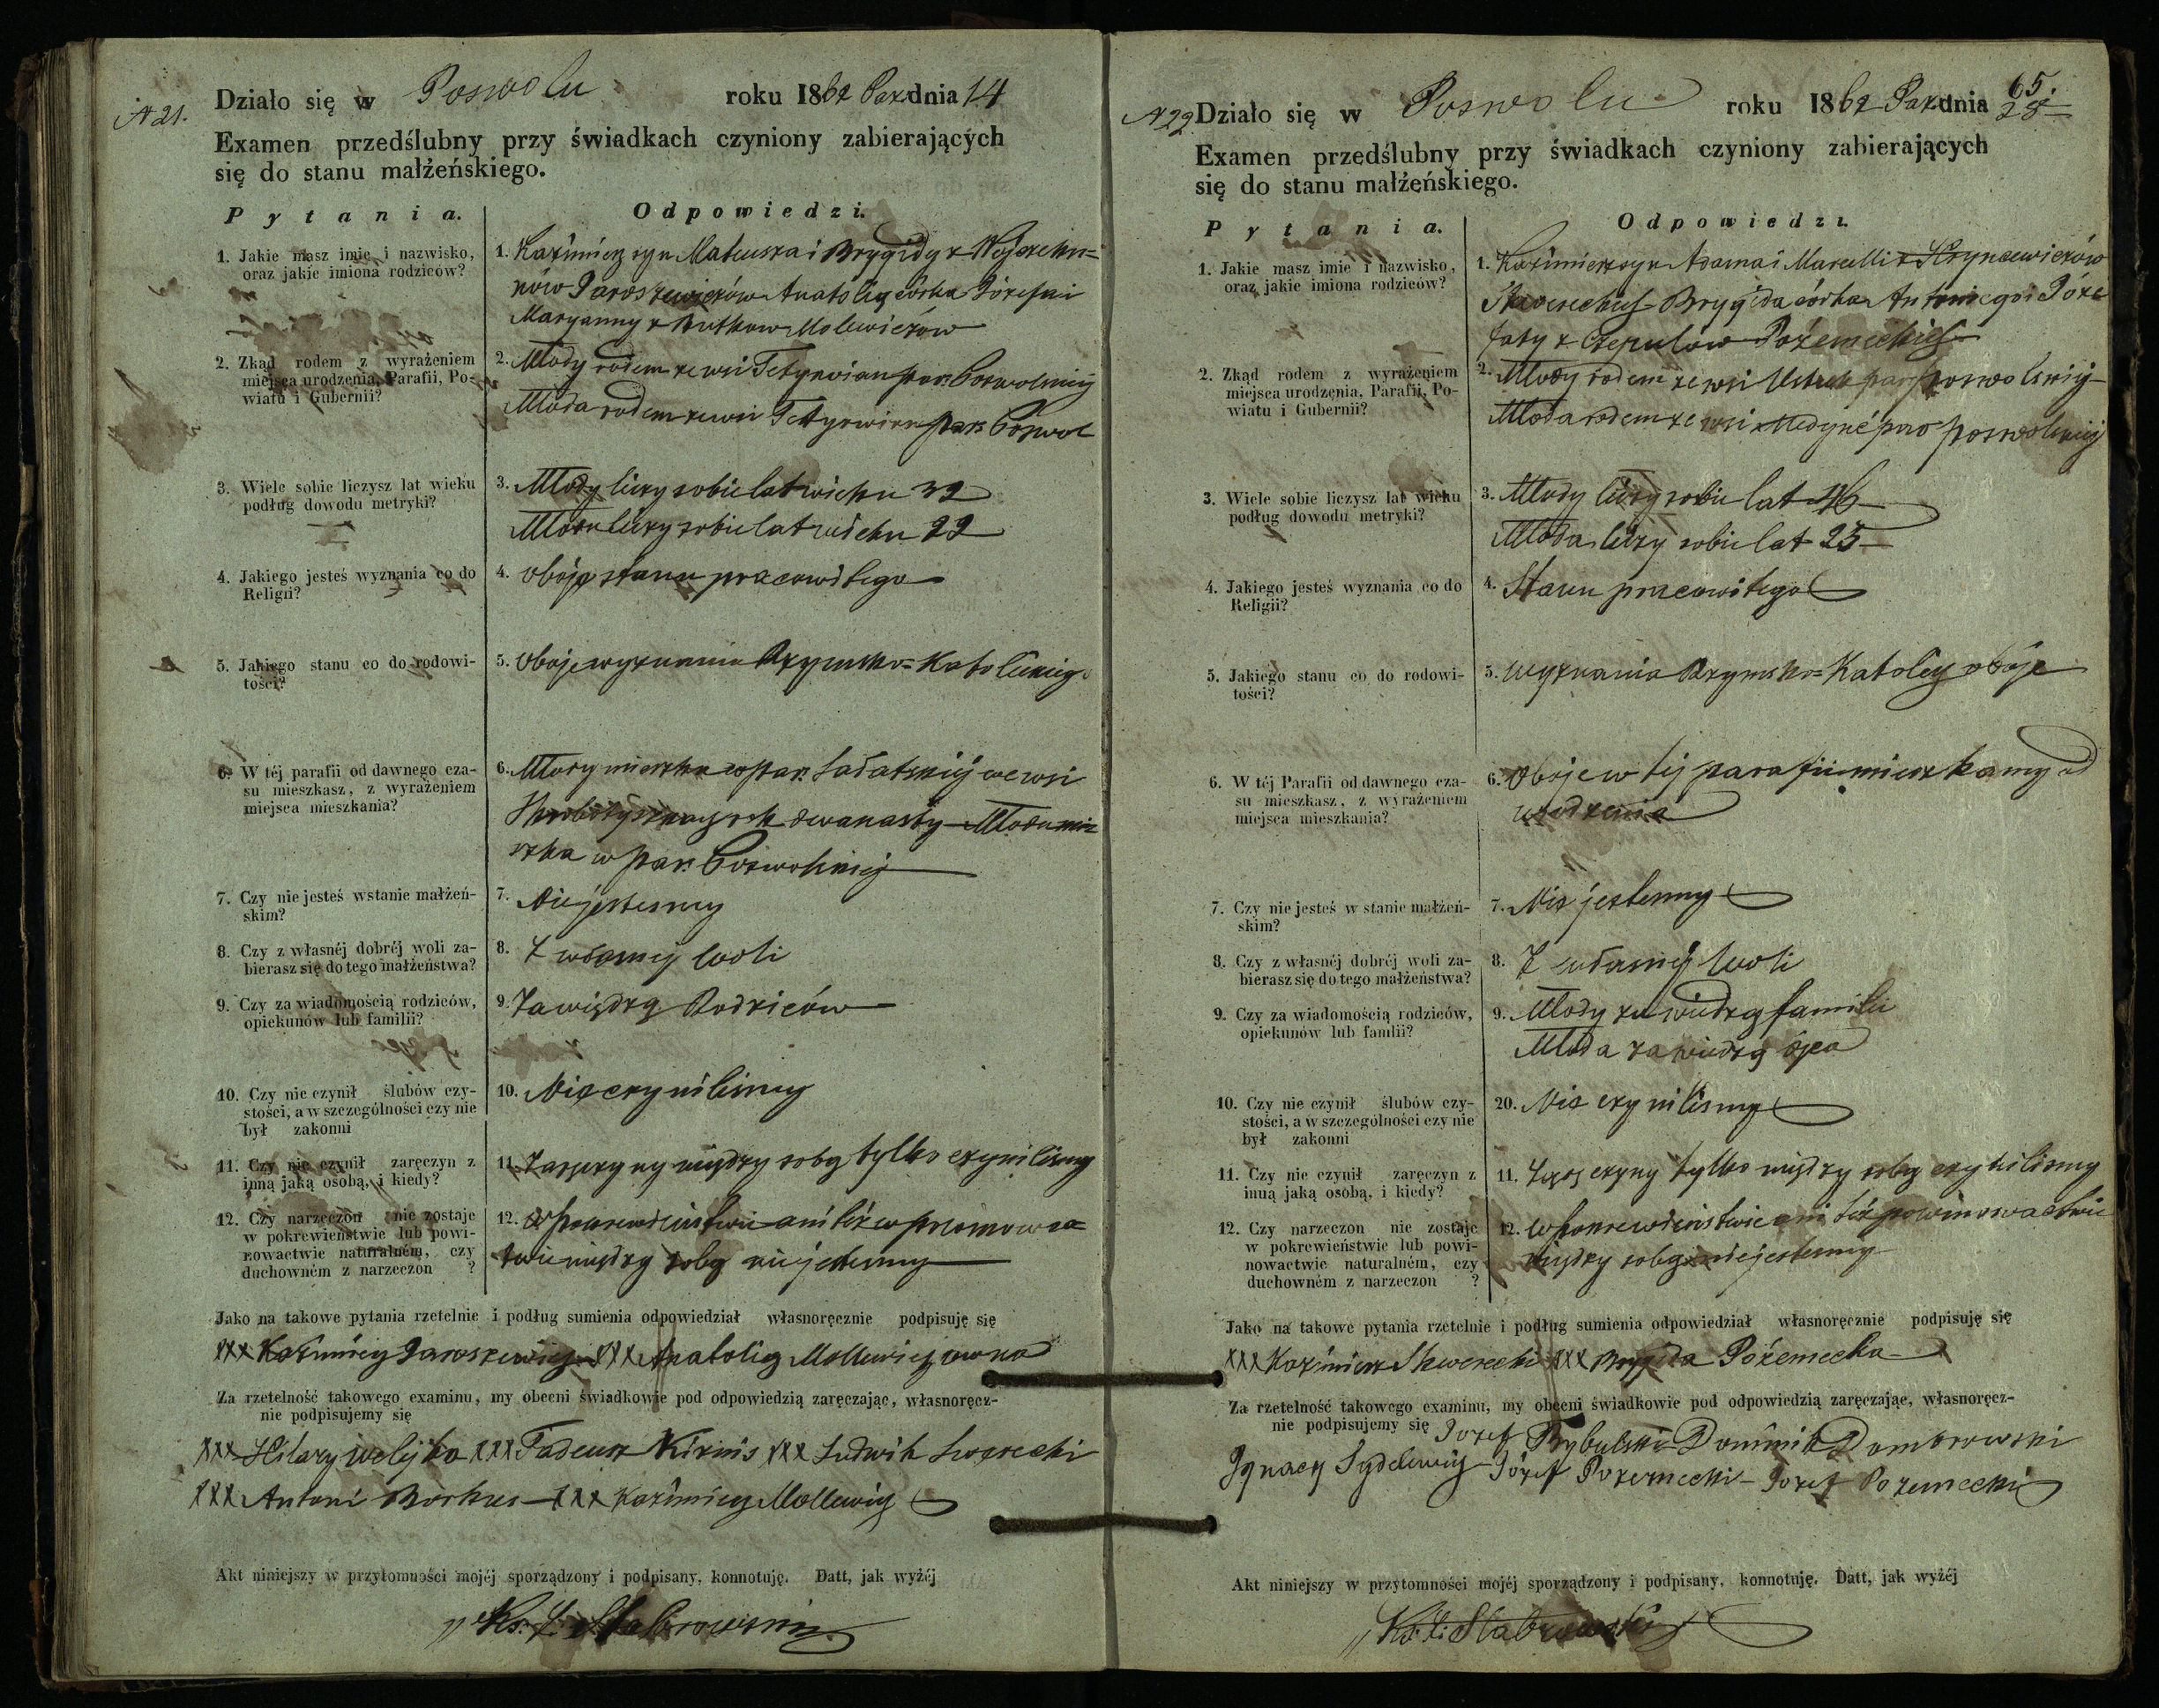 N 21.
Działo się w Poswolu roku 1862 Paz dnia 14
Examen przedślubny przy świadkach czyniony zabierających
się do stanu małżeńskiego.
Pytania. Odpowiedzi.
1. Jakie masz imie i nazwisko,
oraz jakie imiona rodziców?
1. Kazimierz syn Mateusza i Brygidy z
Jaroszewiczów Anatolią córka Józefa i
Maryanny z Butkow Molewiczów
2. Zkąd rodem z wyrażeniem
miejsca urodzenia, Parafii, Po-
wiatu i Gubernii?
2. Młody rodem ze wsi Tetyrwian par. Poswolskiéj
Młoda rodem ze wsi Tetyrwian par. Poswol
3. Wiele sobie liczysz lat wieku
podług dowodu metryki?
3. Młody liczy sobie lat wieku 32
Młoda liczy sobie lat wieku 22
4. Jakiego jesteś wyznania co do
Religii?
4. Oboje stanu pracowitego
5. Jakiego stanu co do rodowi-
tości?
5. Oboje wyznania Rzymsko=Katolickiego
6. W téj parafii od dawnego cza-
su mieszkasz, z wyrażeniem
miejsca mieszkania?
6. Młody mieszka w par. we wsi
dwanasty Młoda mie
szka w par. Poswolskiéj
7. Czy nie jesteś w stanie małżeń-
skim?
7. Nie jestesmy
8. Czy z własnéj dobréj woli za-
bierasz się do tego małżeństwa?
8. Z własnéj woli
9. Czy za wiadomością rodziców,
opiekunów lub familii?
9. Za wiedzą Rodziców
10. Czy nie czynił ślubów czy-
stości, a w szczególności czy nie
był zakonni
10. Nie czynilismy
11. Czy nie czynił zaręczyn z
inną jaką osobą, i kiedy?
11. Zaręczyny między sobą tylko czynilismy
12. Czy narzeczon nie zostaje
w pokrewieństwie lub powi-
nowactwie naturalném, czy
duchowném z narzeczon ?
12. W pokrewieństwie ani też w
twie między sobą nie jestesmy
Jako na takowe pytania rzetelnie i podług sumienia odpowiedział własnoręcznie podpisuję się
XXX Kazimierz Jaroszewicz XXX Anatolią Mollewiczowna
Za rzetelność takowego examinu, my obecni świadkowie pod odpowiedzią zaręczając, własnoręcz-
nie podpisujemy się
XXX Hilary Welejko XXX Tadeusz Kirnis XXX Ludwik
XXX Antoni Borkus XXX Kazimierz Mollewicz
Akt niniejszy w przytomności mojéj sporządzony i podpisany, konnotuję. Datt, jak wyżéj
Ks. Stabrowski
65.
N 22
Działo się w Poswolu roku 1862 Paz dnia 28
Examen przedślubny przy świadkach czyniony zabierających
się do stanu małżeńskiego.
Pytania. Odpowiedzi.
1. Jakie masz imie i nazwisko,
oraz jakie imiona rodziców?
1. Kazimierz syn Adama i Marcelli z Hryncewiczów
Brygida córka Antoniego i Józe
faty z Czepulow Pożemeckich
2. Zkąd rodem z wyrażeniem
miejsca urodzenia, Parafii, Po-
wiatu i Gubernii?
2. Młody rodem ze wsi par. Poswolskiéj
Młoda rodem ze wsi par. Poswolskiéj
3. Wiele sobie liczysz lat wieku
podług dowodu metryki?
3. Młody liczy sobie lat 46
Młoda liczy sobie lat 25
4. Jakiego jesteś wyznania co do
Religii?
4. Stanu pracowitego
5. Jakiego stanu co do rodowi-
tości?
5. Wyznania Rzymsko=Katolicy oboje
6. W téj Parafii od dawnego cza-
su mieszkasz, z wyrażeniem
miejsca mieszkania?
6. Oboje w téj parafii mieszkamy od
urodzenia
7. Czy nie jesteś w stanie małżeń-
skim?
7. Nie jestesmy
8. Czy z własnéj dobréj woli za-
bierasz się do tego małżeństwa?
8. Z własnéj woli
9. Czy za wiadomością rodziców,
opiekunów lub familii?
9. Młody za wiedzą familii
Młoda za wiedzą ojca
10. Czy nie czynił ślubów czy-
stości, a w szczególności czy nie
był zakonni
20. Nie czynilismy
11. Czy nie czynił zaręczyn z
inną jaką osobą, i kiedy?
11. Zaręczyny tylko między sobą czynilismy
12. Czy narzeczon nie zostaje
w pokrewieństwie lub powi-
nowactwie naturalném, czy
duchowném z narzeczon ?
12. W pokrewieństwie ani też powinowactwie
między sobą nie jestesmy
Jako na takowe pytania rzetelnie i podług sumienia odpowiedział własnoręcznie podpisuję się
XXX Kazimierz Skworecki XXX Brygida Pożemecka
Za rzetelność takowego examinu, my obecni świadkowie pod odpowiedzią zaręczając, własnoręcz-
nie podpisujemy się Jozef Dominik Dombrowski
Ignacy Józef Pożemecki Jozef Pożemecki
Akt niniejszy w przytomności mojéj sporządzony i podpisany, konnotuję. Datt, jak wyżéj
Ks. Stabrowski